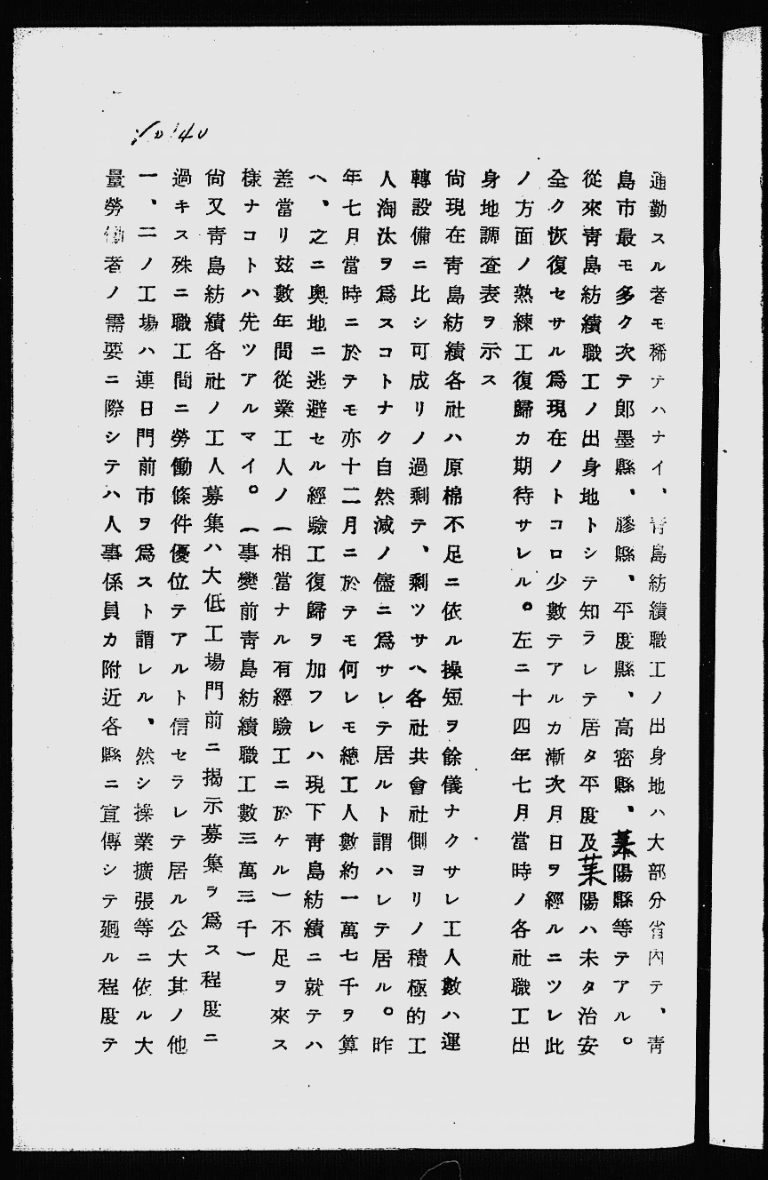 通勤スル者モ稀テハナイ、青島紡績職工ノ出身地ハ大部分省內テ、靑
島市最モ多ク次テ卽墨縣、膠縣、平度縣、高密縣、萊陽縣等テアル。
從來靑島紡績職工ノ出身地トシテ知ラレテ居タ平度及萊陽ハ未タ治安
全ク恢復セサル爲現在ノトコロ少數テアルカ漸次月日ヲ經ルニツレ此
ノ方面ノ熟練工復歸カ期待サレル。左ニ十四年七月當時ノ各社職工出
身地調査表ヲ示ス
尙現在靑島紡績各社ハ原棉不足ニ依ル操短ヲ餘儀ナクサレ工人數ハ運
轉設備ニ比シ可成リノ過剩テ、剩ツサヘ各社共會社側ヨリノ積極的工
人淘汰ヲ爲スコトナク自然減ノ儘ニ爲サレテ居ルト謂ハレテ居ル。昨
年七月當時ニ於テモ亦十二月ニ於テモ何レモ總工人數約一萬七千ヲ算
ヘ、之ニ奧地ニ逃避セル經驗工復歸ヲ加フレハ現下靑島紡績ニ就テハ
差當リ玆數年間從業工人ノ(相當ナル有經驗工ニ於ケル)不足ヲ來ス
樣ナコトハ先ツアルマイ。(事變前靑島紡績職工數三萬三千)
尙又靑島紡績各社ノ工人募集ハ大低工場門前ニ揭示募集ヲ爲ス程度ニ
過キス殊ニ職工間ニ勞働條件優位テアルト信セラレテ居ル公大其ノ他
一、二ノ工場ハ連日門前市ヲ爲スト謂レル、然シ操業擴張等ニ依ル大
量勞働者ノ需要ニ際シテハ人事係員カ附近各縣ニ宣傳シテ廻ル程度テ